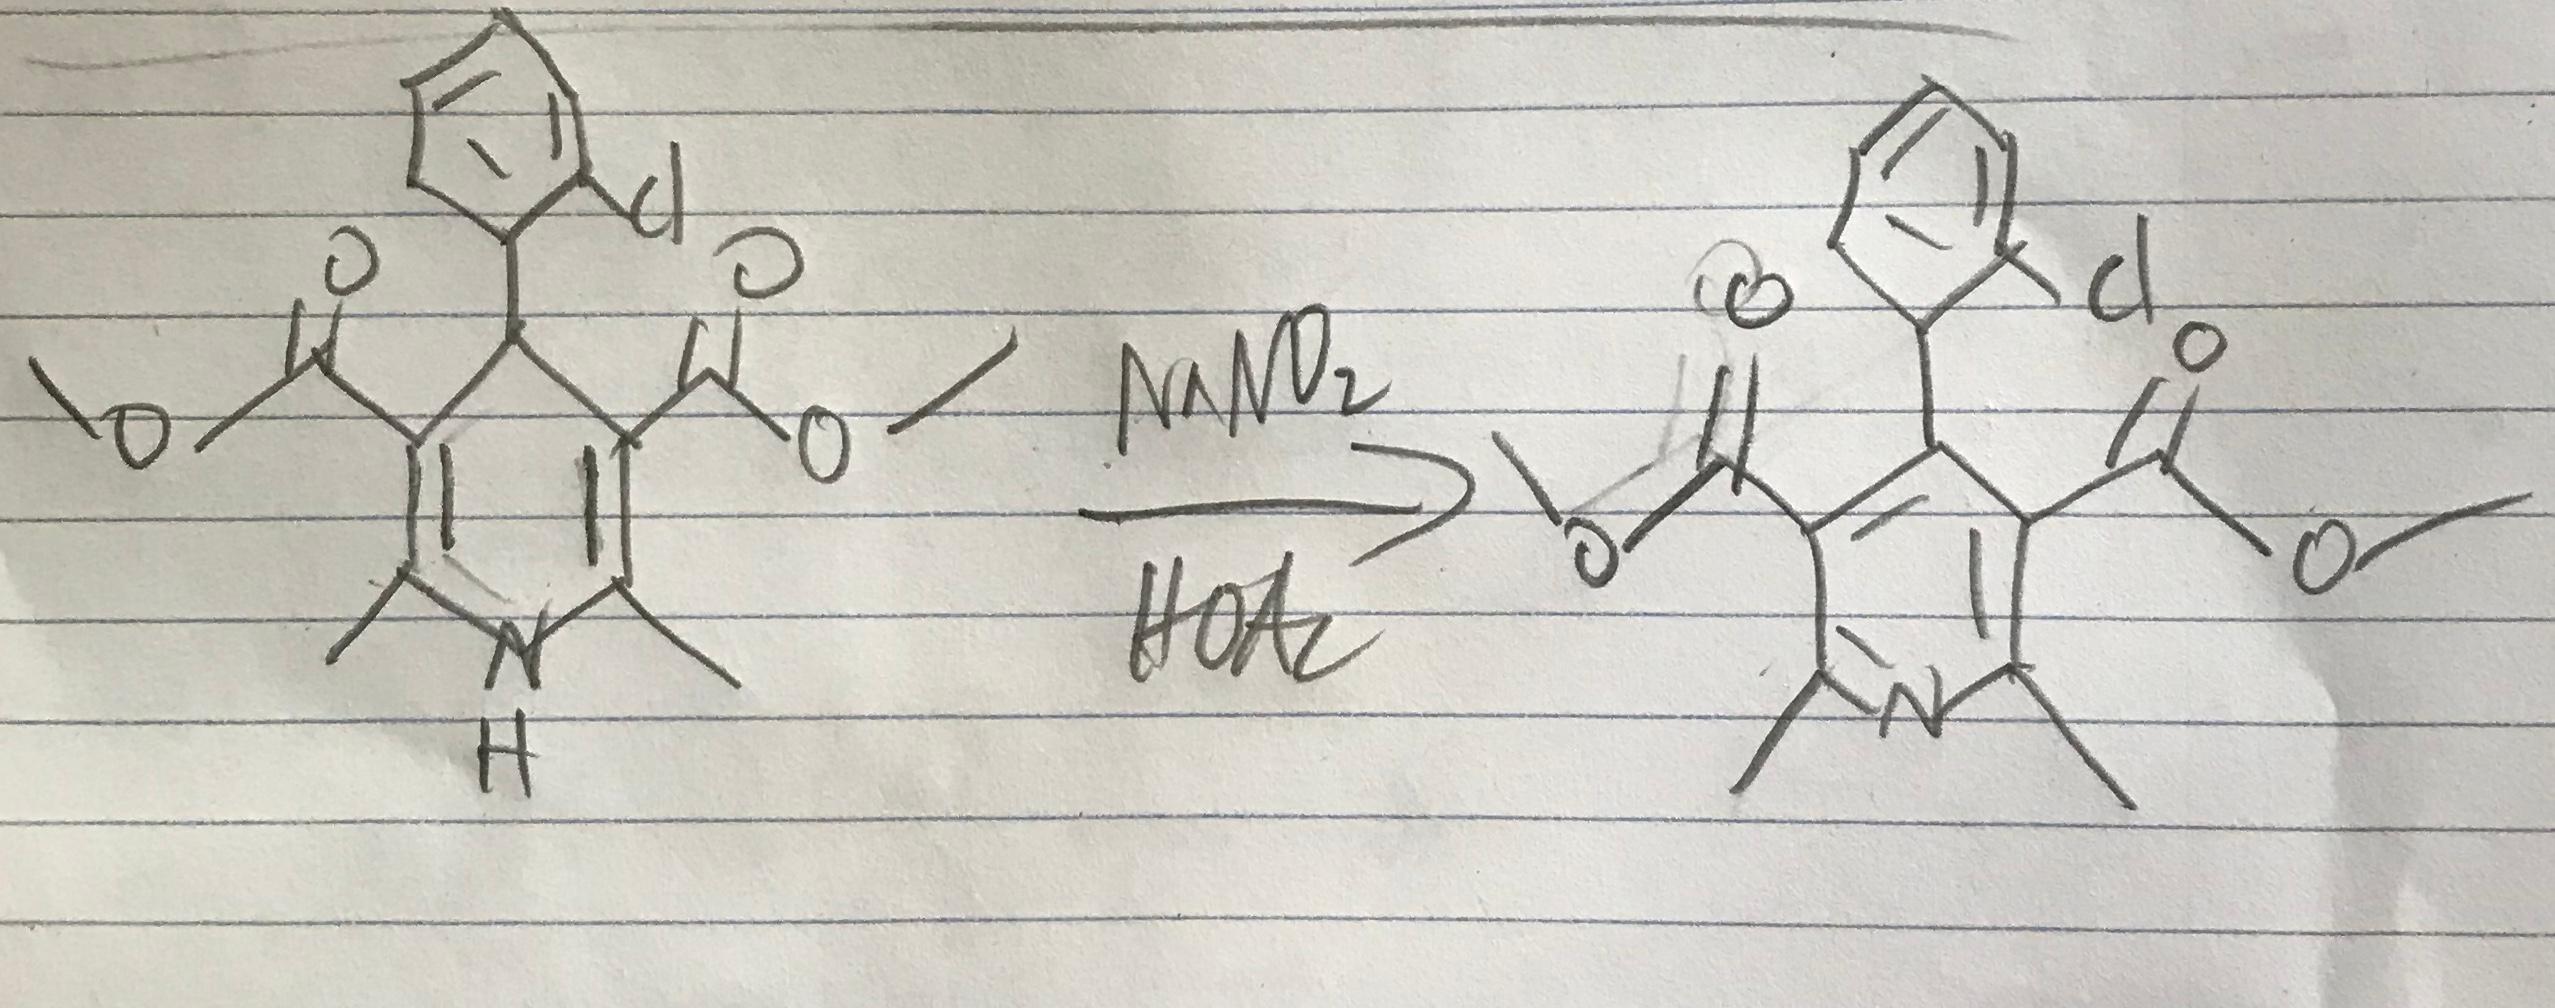 Cl
O
O
O
O
N
H
NaNO2
HOAc
Cl
O
O
O
O
N